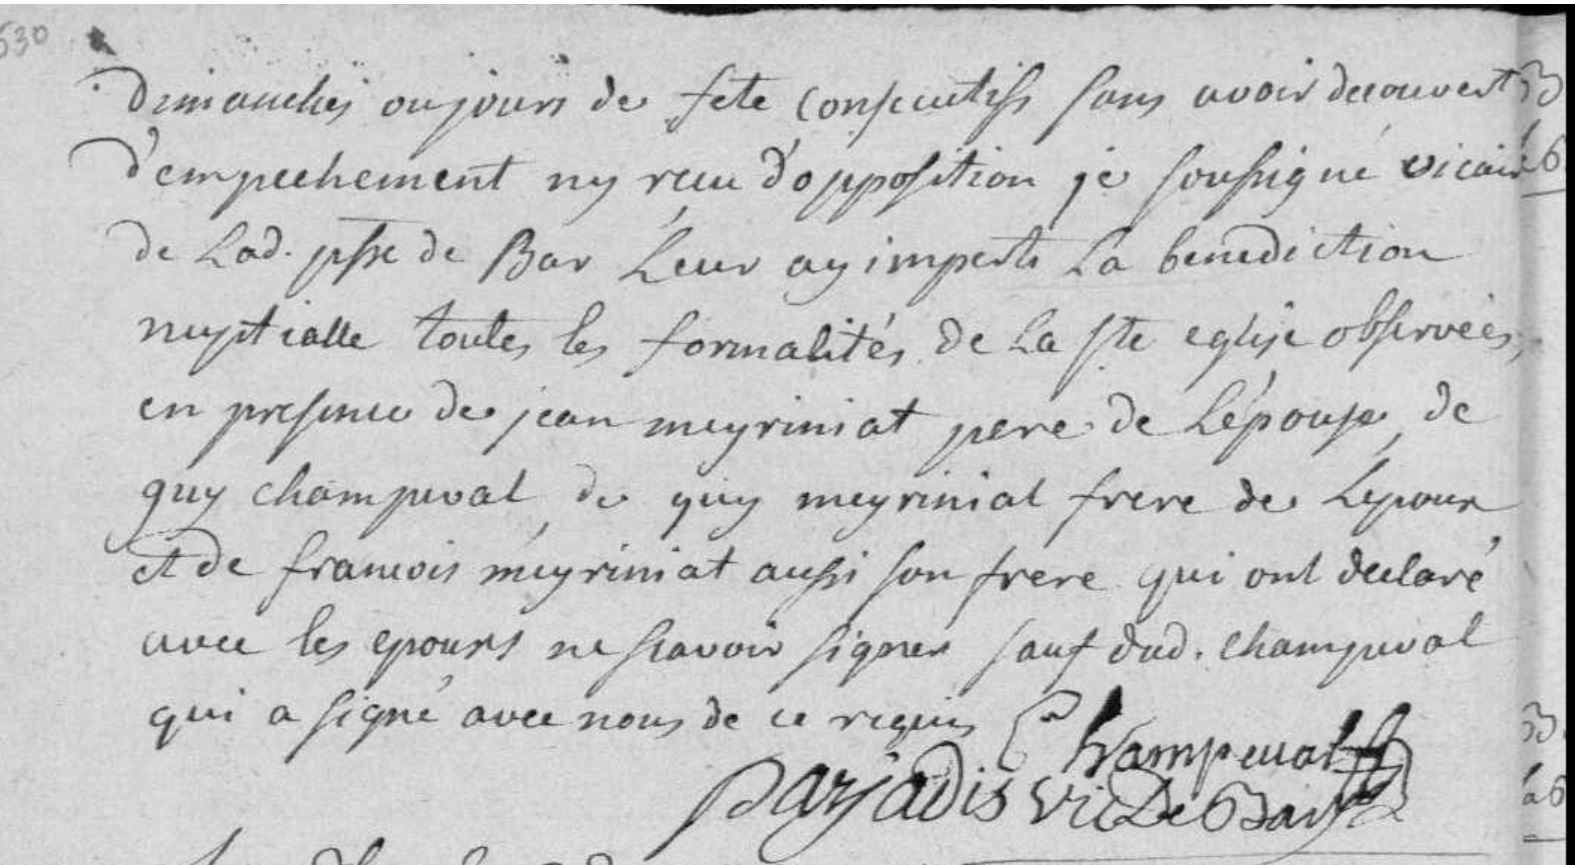 630
dimanches ou jours de fete consecutifs sans avoir decouvert
d'empechement ny recu d'opposition je soussigné vicaire
de Lad. psse de Bar Leur ay imparti La benediction
nuptialle toutes les formalités de La ste eglise observées,
en presence de jean meyriniat pere de L'épouse, de
guy champeval, de guy meyriniat frere de L'epoux
et de francois meyriniat aussi son frere qui ont declaré
avec les epoux ne scavoir signer sauf dud. champeval
qui a signé avec nous de ce requis Champeval
parjadis vic De Bar